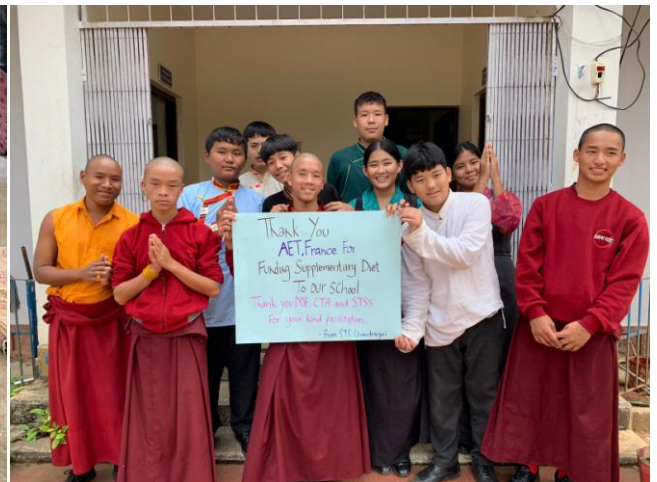 Thank You
AET, France For
Funding Supplementary Diet
To our School
Thank you DOE, CTA and STSS
For your kind facilitation
- From STS Chandragiri